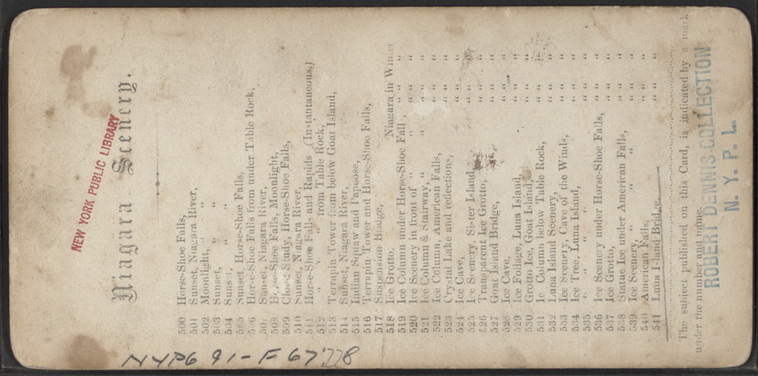 Niagara Scenery.
NEW YORK PUBLIC LIBRARY
500 Horse-Shoe Falls,
501 Sunset, Niagara River,
502 Moonlight, " "
503 Sunset, " "
504 Sunset,
505 Sunset, Horse-Shoe Falls,
506 Horse-Shoe Falls from under Table Rock,
507 Sunset, Niagara River,
508 Horse-Shoe Falls, Moonlight,
509 Cloud Study, Horse-Shoe Falls,
510 Sunset, Niagara River,
511 Horse-Shoe Falls and Rapids (Instantaneous,)
512 " " from Table Rock,
513 Terrapin Tower from below Goat Island,
514 Sunset, Niagara River,
515 Indian Squaw and Papoose,
516 Terrapin Tower and Horse-Shoe Falls,
517 Suspension Bridge,
518 Ice Grotto, Niagara in Winter
519 Ice Column under Horse-Shoe Fall, " "
520 Ice Scenery in front of " " "
521 Ice Column & Stairway, " " "
522 Ice Column, American Falls, " "
523 Crystal Lake and reflections, " "
524 Ice Cave, " "
525 Ice Scenery, Sister Island, " "
526 Transparent Ice Grotto, " "
527 Goat Island Bridge, " "
528 Ice Cave, " "
529 Ice Foliage, Luna Island, " "
530 Grotto Ice, Goat Island, " "
531 Ice Column below Table Rock, " "
532 Luna Island Scenery, " "
533 Ice Scenery, Cave of the Winds, " "
534 Ice Tree, Luna Island, " "
535 " " " " "
536 Ice Scenery under Horse-Shoe Falls, " "
537 Ice Grotto, " "
538 Statue Ice under American Falls, " "
539 Ice Scenery, " " " "
540 American Falls, " "
541 Luna Island Bridge, " "
The subject published on this Card, is indicated by a mark
under the number and name.
ROBERT DENNIS COLLECTION
N. Y. P. L.
NYPG 91-F67